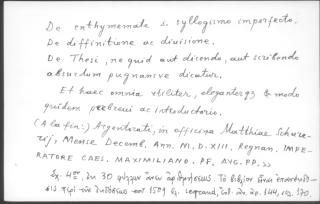 De enthymemate s. syllogismo imperfecto.
De diffinitione ac diuisione.
De Thesi, ne quid aut dicendo, aut scribendo
absurdum pugnansve dicatur.
Et haec omnia utiliter, eleganterq3 & modo
quidem perbreui ac introductorio.
(A la fin:) Argentorati, in officina Matthiae Schure-
rij, Mense Decemb. Ann. M.D.XIII. Regnan. IMPE-
RATORE CAES. MAXIMILIANO. PF. AVG. PP. >>
Σχ. 4ον, ἐκ 30 φύλλων ἄνευ ἀριθμήσεως. Τὸ βιβλίον
περὶ τῆς ἐκδόσεως τοῦ 1509 Legrand, 144, 170.